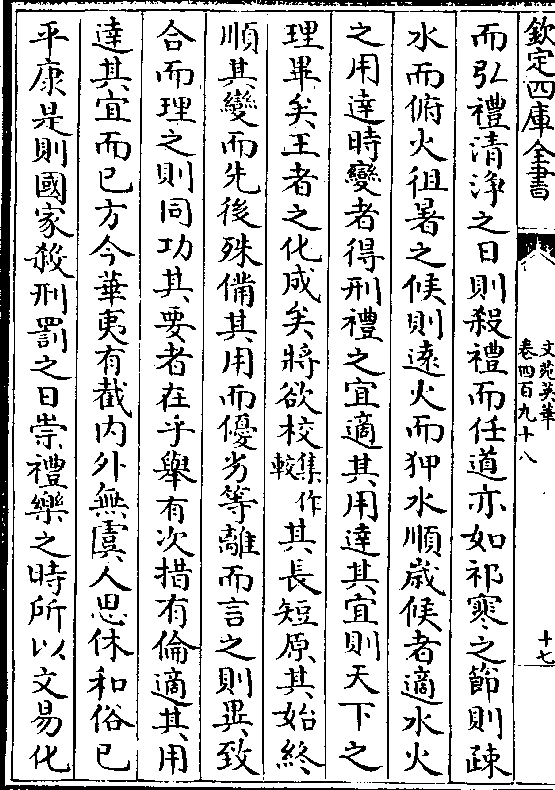 欽定四庫全書
文苑英華
卷四百九十八
十七
而弘禮清淨之日則殺禮而任道亦如祁寒之節則疎
水而俯火徂暑之候則遠火而狎水順歲候者適水火
之用達時變者得刑禮之宜適其用達其宜則天下之
理畢矣王者之化成矣將欲校集作較其長短原其始終
順其變而先後殊備其用而優劣等離而言之則異致
合而理之則同功其要者在乎舉有次措有倫適其用
達其宜而已方今華夷有截内外無虞人思休和俗已
平康是則國家殺刑罰之日崇禮樂之時所以文易化